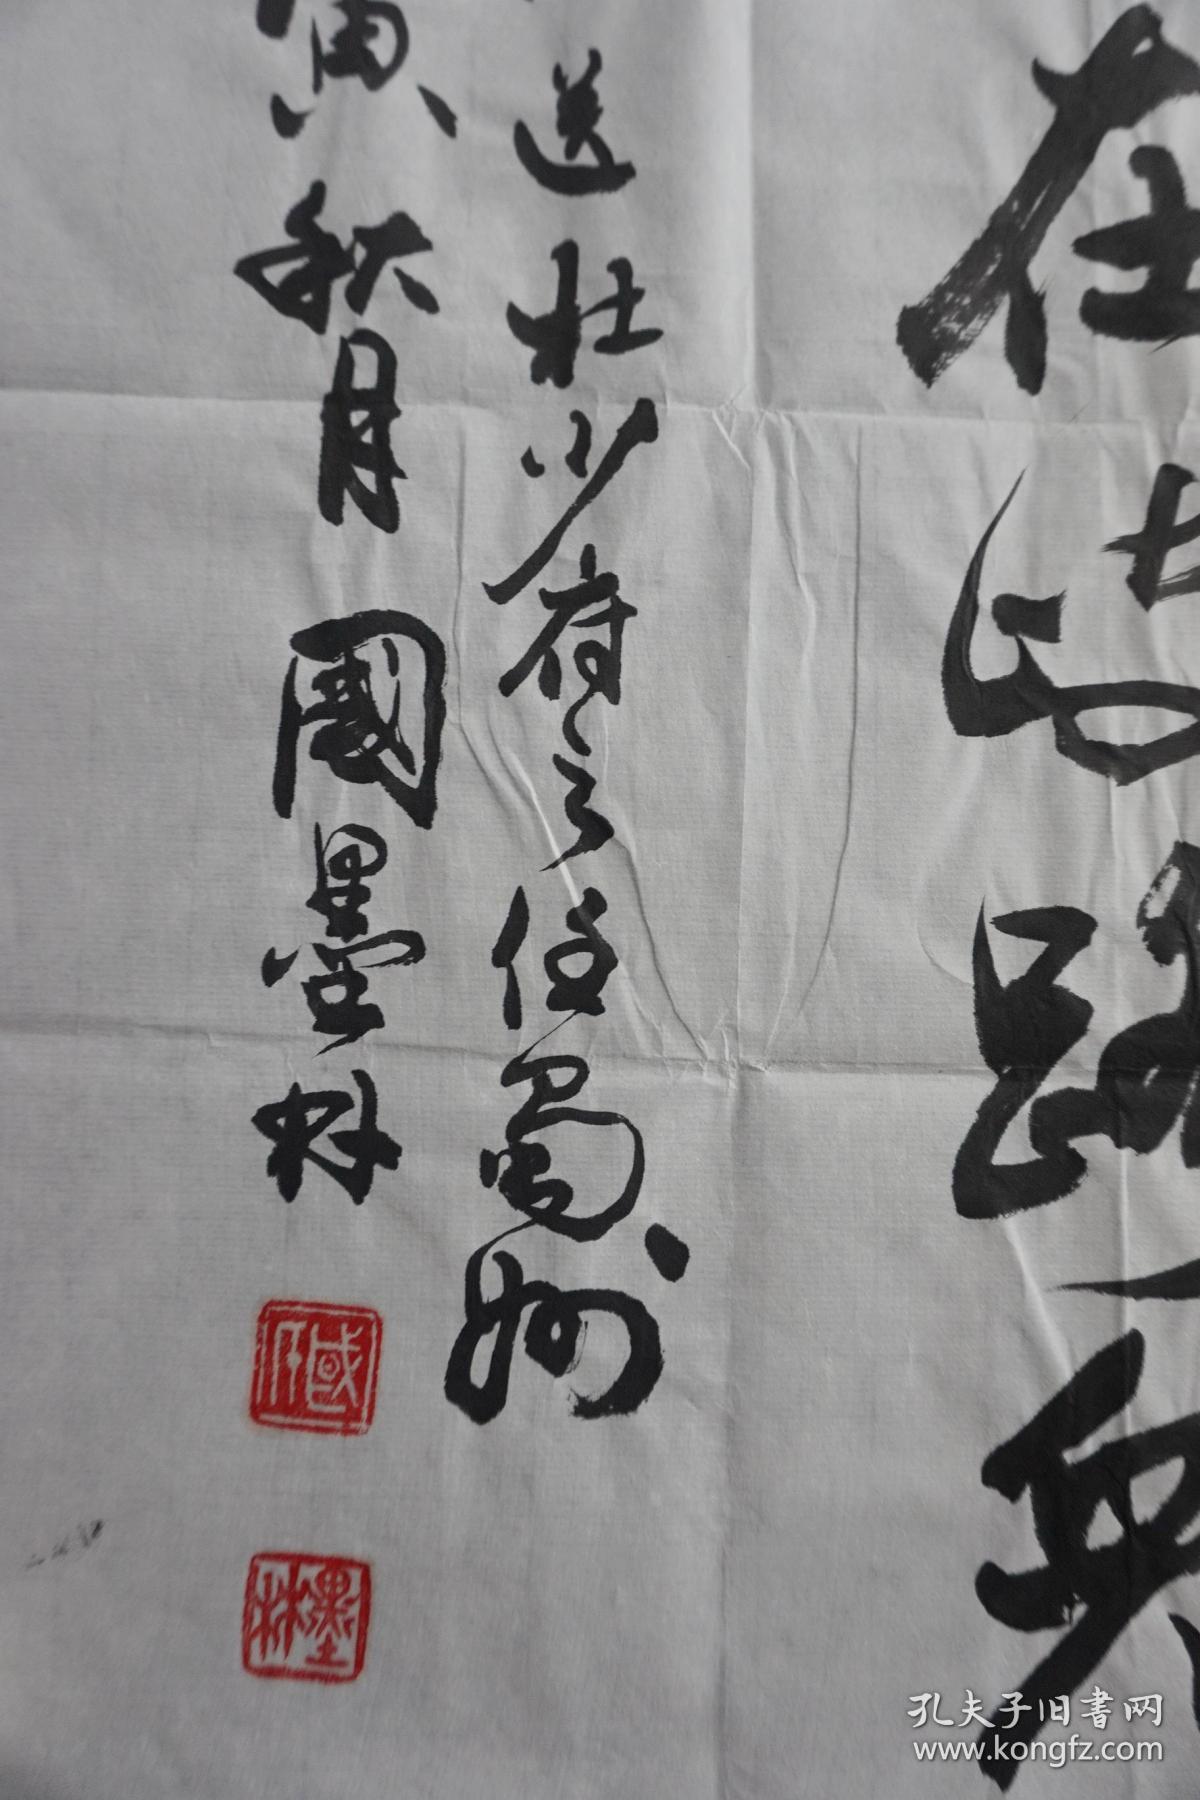 在歧路兒
送杜少府之任蜀州
寅秋月 國墨林
國
墨林
孔夫子旧书网
www.kongfz.com